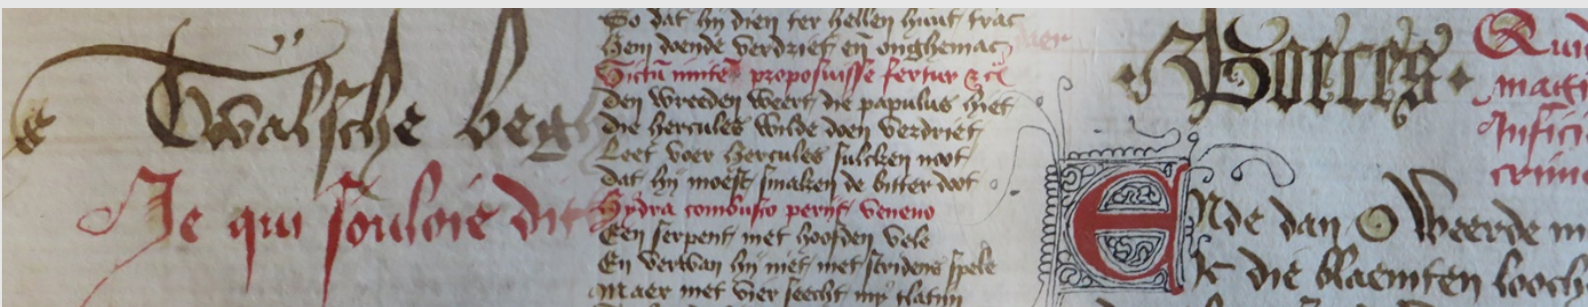 Twalsche beg
Je qui souloie dit
So dat hy dien ter hellen huut trac
Hem doende verdriet en onghemac
proposuisse fertur
Den wreeden weert die papulus hiet
die hercules wilde doen verdriet
Leet voer hercules sulcken noot
dat hy moest smaken de bitter doot
Hydra combusto perijt veneno
Een serpent met hoofden vele
En verwan hy niet met stridens spele
Maer met vier seecht
Boeces
Ende dan O weerde
Ic die blaemten